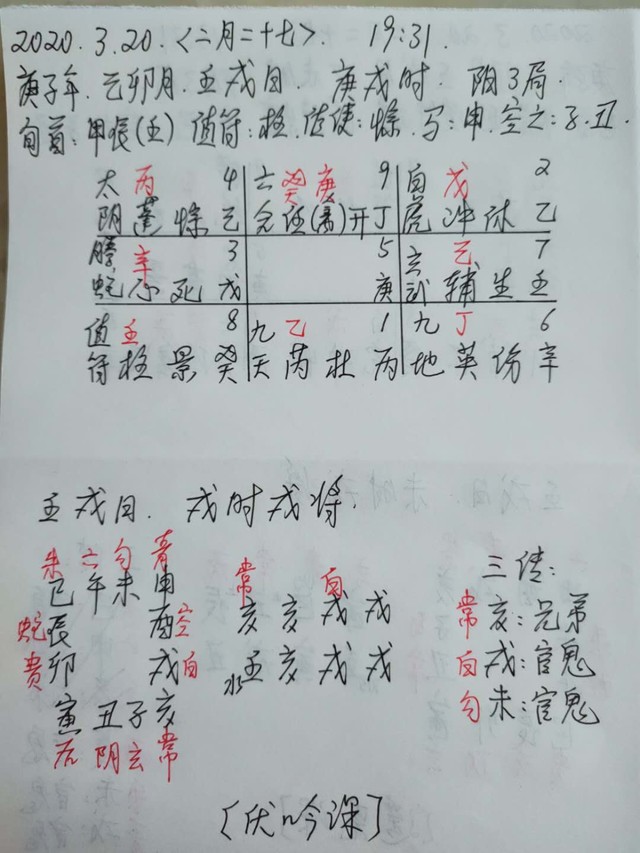 2020.3.20.<二月二十七>. 19:31.
庚子年.乙卯月.壬戌日. 庚戌时. 阴3局.
旬首:甲辰(壬) 值符:柱.值使:惊.马:申.空亡:子.丑.
太 丙 4 六 癸 庚 9 白 戊 2
阴 蓬 惊 己 合 任(禽)开 丁 虎 冲 休 乙
腾 辛 3 5 玄 己 7
蛇 心 死 戊 庚 武 辅 生 壬
值 壬 8 九 乙 1 九 丁 6
符 柱 景 癸 天 芮 杜 丙 地 英 伤 辛
壬戌日. 戌时戌将.
朱 六 勾 青
巳 午 未 申
蛇 辰 酉 空
贵 卯 戌 白
寅 丑 子 亥
后 阴 玄 常
常 白
亥 亥 戌 戌
水壬 亥 戌 戌
三传:
常 亥:兄弟
白 戌:官鬼
勾 未:官鬼
[伏吟课]